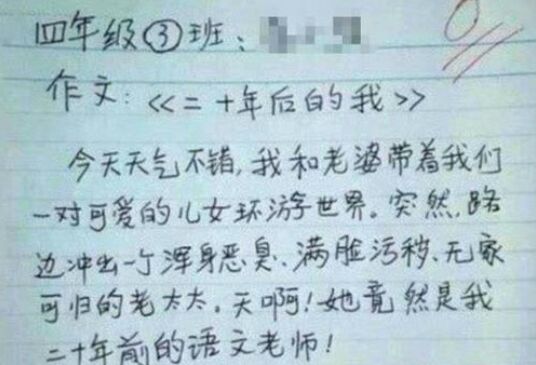 四年级③班:
0
作文:<<二十年后的我>>
今天天气不错,我和老婆带着我们
一对可爱的儿女环游世界。突然,路
边冲出一个浑身恶臭、满脸污秽、无家
可归的老太太。天啊!她竟然是我
二十年前的语文老师!